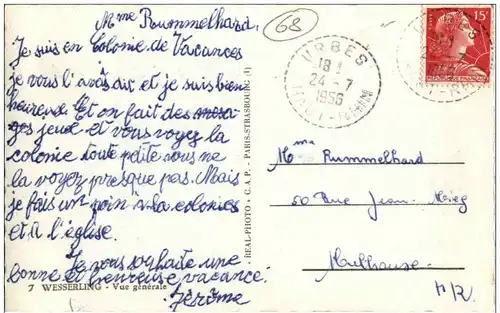 Mme Rummelhard.
Je suis en Colonie de Vacances
je vous l'avais dit et je suis bien
heureuse. Et on fait des
ges jeux et vous voyez la
colonie toute petite vous ne
la voyez presque pas. Mais
je fais un poin à la colonies
et à l'église.
Je vous souhaite une
bonne et heureuse vacance.
Jérôme
7 WESSERLING - Vue générale
REAL-PHOTO - C.A.P. - PARIS-STRASBOURG (1)
68
URBES
18 H
24 - 7
1956
HAUT-RHIN
15F
Mme Rummelhard
50 Rue Jean Mieg
Mulhouse
H R.